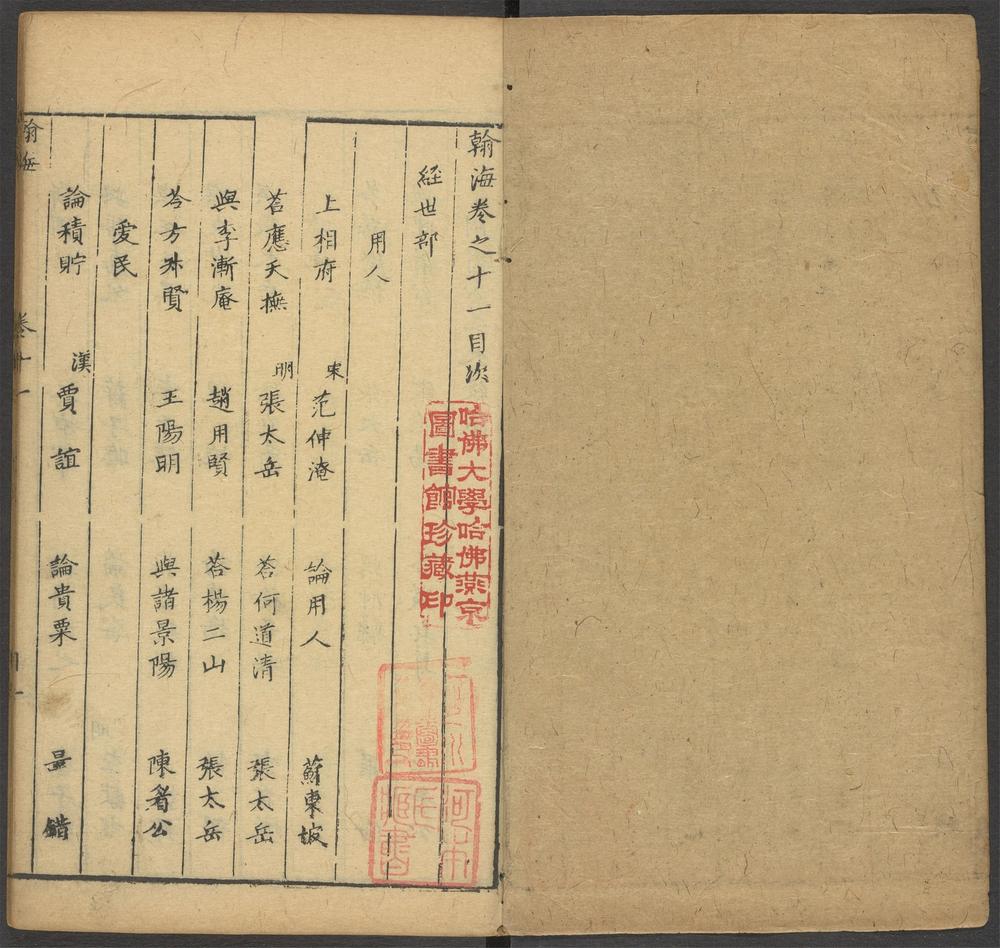 翰海卷之十一目次
經世部
用人
上相府 宋 范仲淹 論用人 蘇東坡
荅應天撫 明 張太岳 荅何道清 張太岳
與李漸庵 趙用賢 荅楊二山 張太岳
荅方叔賢 王陽明 與諸景陽 陳眉公
愛民
論積貯 漢 賈誼 論貴粟 晁錯
翰海 卷十一 目一
哈佛大學哈佛燕京
圖書館珍藏印